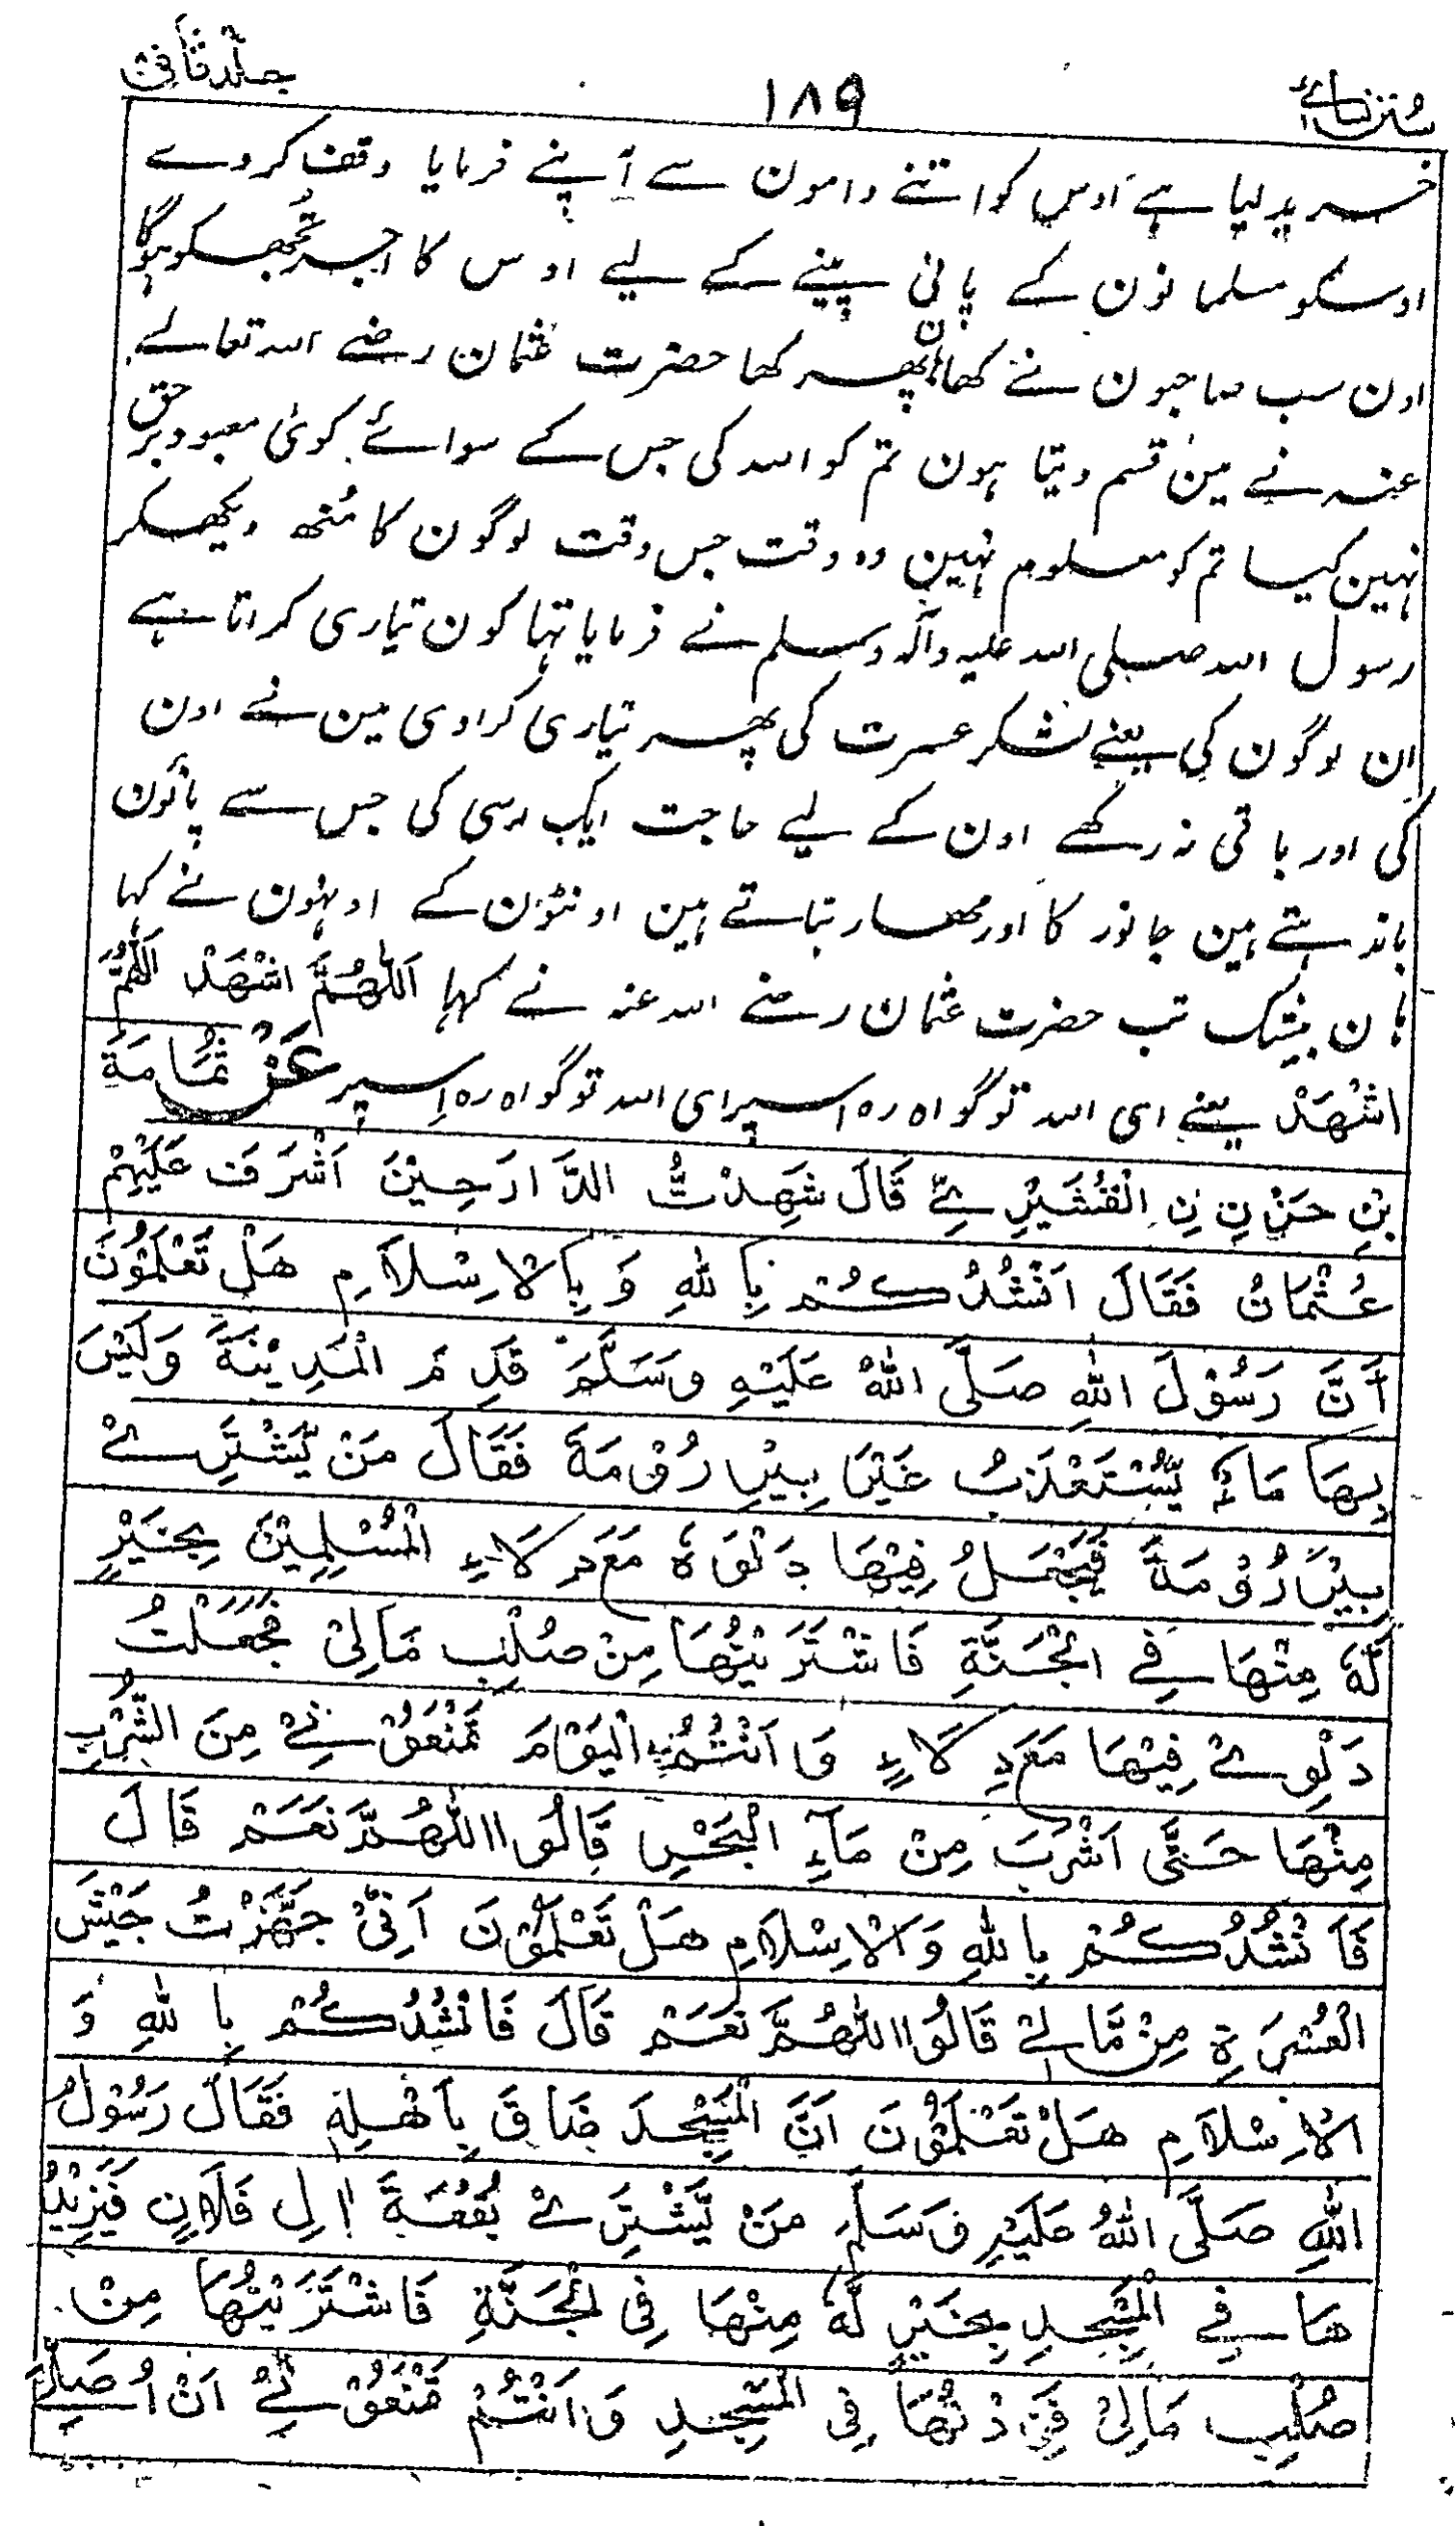 سنن نسائی ۱۸۹ جلد ثانی
خرید لیا ہے اوس کو اتنے دامون سے آپنے فرمایا وقف کر دے
اوسکو مسلمانون کے پانی پینے کے لیے اوس کا اجر تجھکو ہوگا
اون سب صاحبون نے کھا ہان پھر کھا حضرت عثمان رضے اللہ تعالے
عنہ نے مین قسم دیتا ہون تم کو اللہ کی جس کے سوائے کوئی معبود برحق
نہین کیا تم کو معلوم نہین وہ وقت جس وقت لوگون کا منھ دیکھکر
رسول اللہ صلی اللہ علیہ وآلہ وسلم نے فرمایا تھا کون تیاری کراتا ہے
ان لوگون کی یعنے لشکر عسرت کی پھر تیاری کرادی مین نے اون
کی اور باقی نہ رکھے اون کے لیے حاجت ایک رسی کی جس سے پانون
باندہتے ہین جانور کا اور مھار بناتے ہین اونٹون کے اونہون نے کہا
ہان بیشک تب حضرت عثمان رضے اللہ عنہ نے کہا اَللّٰهُمَّ اشْهَدْ اَللّٰهُمَّ
اشْهَدْ یعنے ای اللہ تو گواہ رہ اسپر ای اللہ تو گواہ رہ اسپر عَنْ ثُمَامَةَ
بْنِ حَزْنِ نِ الْقُشَيْرِيِّ قَالَ شَهِدْتُّ الدَّارَ حِيْنَ اَشْرَفَ عَلَيْهِمْ
عُثْمَانُ فَقَالَ اَنْشُدُكُمْ بِاللّٰهِ وَ بِالْاِسْلَامِ هَلْ تَعْلَمُوْنَ
اَنَّ رَسُوْلَ اللّٰهِ صَلَّى اللّٰهُ عَلَيْهِ وَسَلَّمَ قَدِمَ الْمَدِيْنَةَ وَلَيْسَ
بِهَا مَاءٌ يُّسْتَعْذَبُ غَيْرَ بِيْرِ رُوْمَةَ فَقَالَ مَنْ يَّشْتَرِيْ
بِيْرَ رُوْمَةَ فَيَجْعَلُ فِيْهَا دَلْوَهٗ مَعَ دِلَاءِ الْمُسْلِمِيْنَ بِخَيْرٍ
لَّهٗ مِنْهَا فِي الْجَنَّةِ فَاشْتَرَيْتُهَا مِنْ صُلْبِ مَالِيْ فَجَعَلْتُ
دَلْوِيْ فِيْهَا مَعَ دِلَاءِ وَاَنْتُمُ الْيَوْمَ تَمْنَعُوْنِيْ مِنَ الشُّرْبِ
مِنْهَا حَتّٰى اَشْرَبَ مِنْ مَآءِ الْبَحْرِ قَالُوا اللّٰهُمَّ نَعَمْ قَالَ
فَاَنْشُدُكُمْ بِاللّٰهِ وَالْاِسْلَامِ هَلْ تَعْلَمُوْنَ اَنِّيْ جَهَّزْتُ جَيْشَ
الْعُسْرَةِ مِنْ مَّالِيْ قَالُوا اللّٰهُمَّ نَعَمْ قَالَ فَاَنْشُدُكُمْ بِاللّٰهِ وَ
الْاِسْلَامِ هَلْ تَعْلَمُوْنَ اَنَّ الْمَسْجِدَ ضَاقَ بِاَهْلِهٖ فَقَالَ رَسُوْلُ
اللّٰهِ صَلَّى اللّٰهُ عَلَيْهِ وَسَلَّمَ مَنْ يَّشْتَرِيْ بُقْعَةَ اٰلِ فُلَانٍ فَيَزِيْدُ
هَا فِي الْمَسْجِدِ بِخَيْرٍ لَّهٗ مِنْهَا فِي الْجَنَّةِ فَاشْتَرَيْتُهَا مِنْ
صُلْبِ مَالِيْ فَزِدْتُهَا فِي الْمَسْجِدِ وَاَنْتُمْ تَمْنَعُوْنِيْ اَنْ اُصَلِّيَ